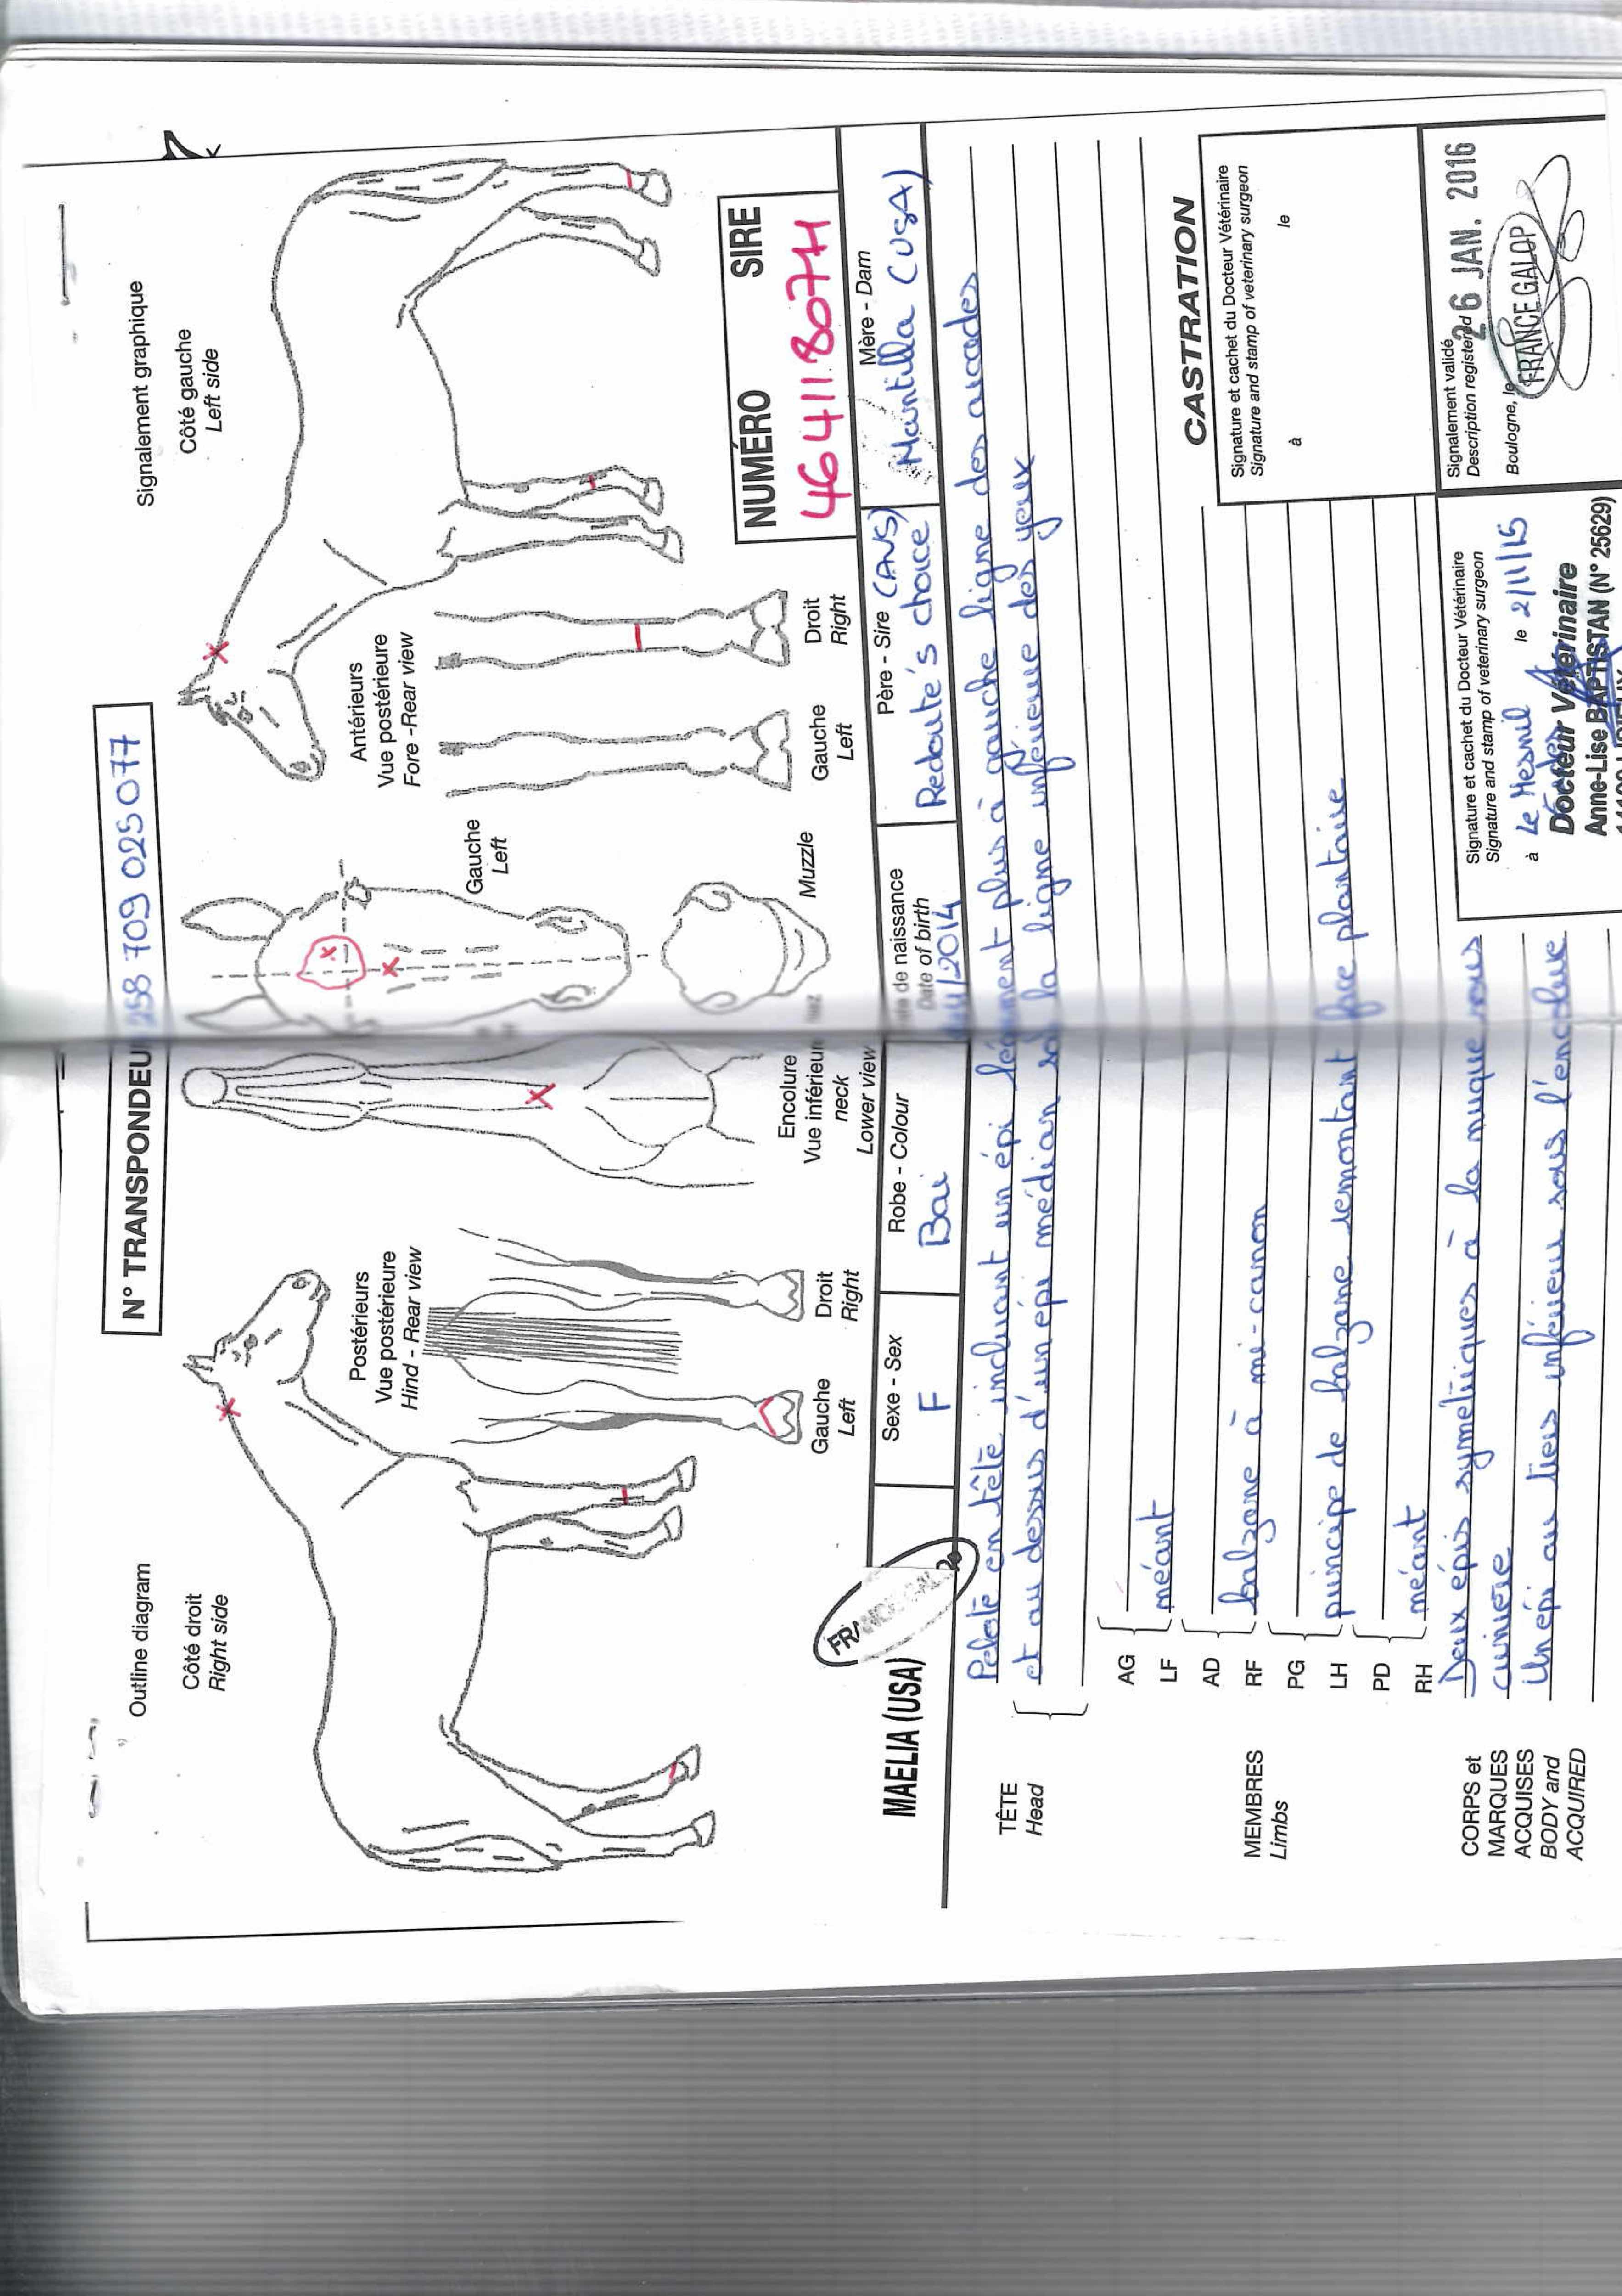 N° TRANSPONDEU 258 709 025 077
Outline diagram
Signalement graphique
Côté droit
Right side
Côté gauche
Left side
Postérieurs
Vue postérieure
Hind - Rear view
Gauche
Left
Droit
Right
Encolure
Vue inférieur
neck
Lower view
Gauche
Left
Muzzle
Antérieurs
Vue postérieure
Fore - Rear view
Gauche
Left
Droit
Right
NUMÉRO SIRE
46411807H
MAELIA (USA)
Sexe - Sex
F
Robe - Colour
Bai
de naissance
Date of birth
/2014
Père - Sire (AUS)
Redoute's choice
Mère - Dam
Mantilla (USA)
TÊTE
Head
Pelote en tête incluant un épi légèrement plus à gauche ligne des arcades
et au dessus d'un épi médian sur la ligne inférieure des yeux
MEMBRES
Limbs
AG
LF
néant
AD
RF
balzane à mi-canon
PG
LH
principe de balzane remontant face plantaire
PD
RH
néant
CORPS et
MARQUES
ACQUISES
BODY and
ACQUIRED
Deux épis symetriques à la nuque sous
crinière
Un épi au tiers inférieur sous l'encolure
CASTRATION
Signature et cachet du Docteur Vétérinaire
Signature and stamp of veterinary surgeon
à le
Signature et cachet du Docteur Vétérinaire
Signature and stamp of veterinary surgeon
à Le Mesnil le 2/11/15
Docteur Vétérinaire
Anne-Lise BAPTISTAN (N° 25629)
Signalement validé
Description registered
26 JAN. 2016
Boulogne, le
FRANCE GALOP